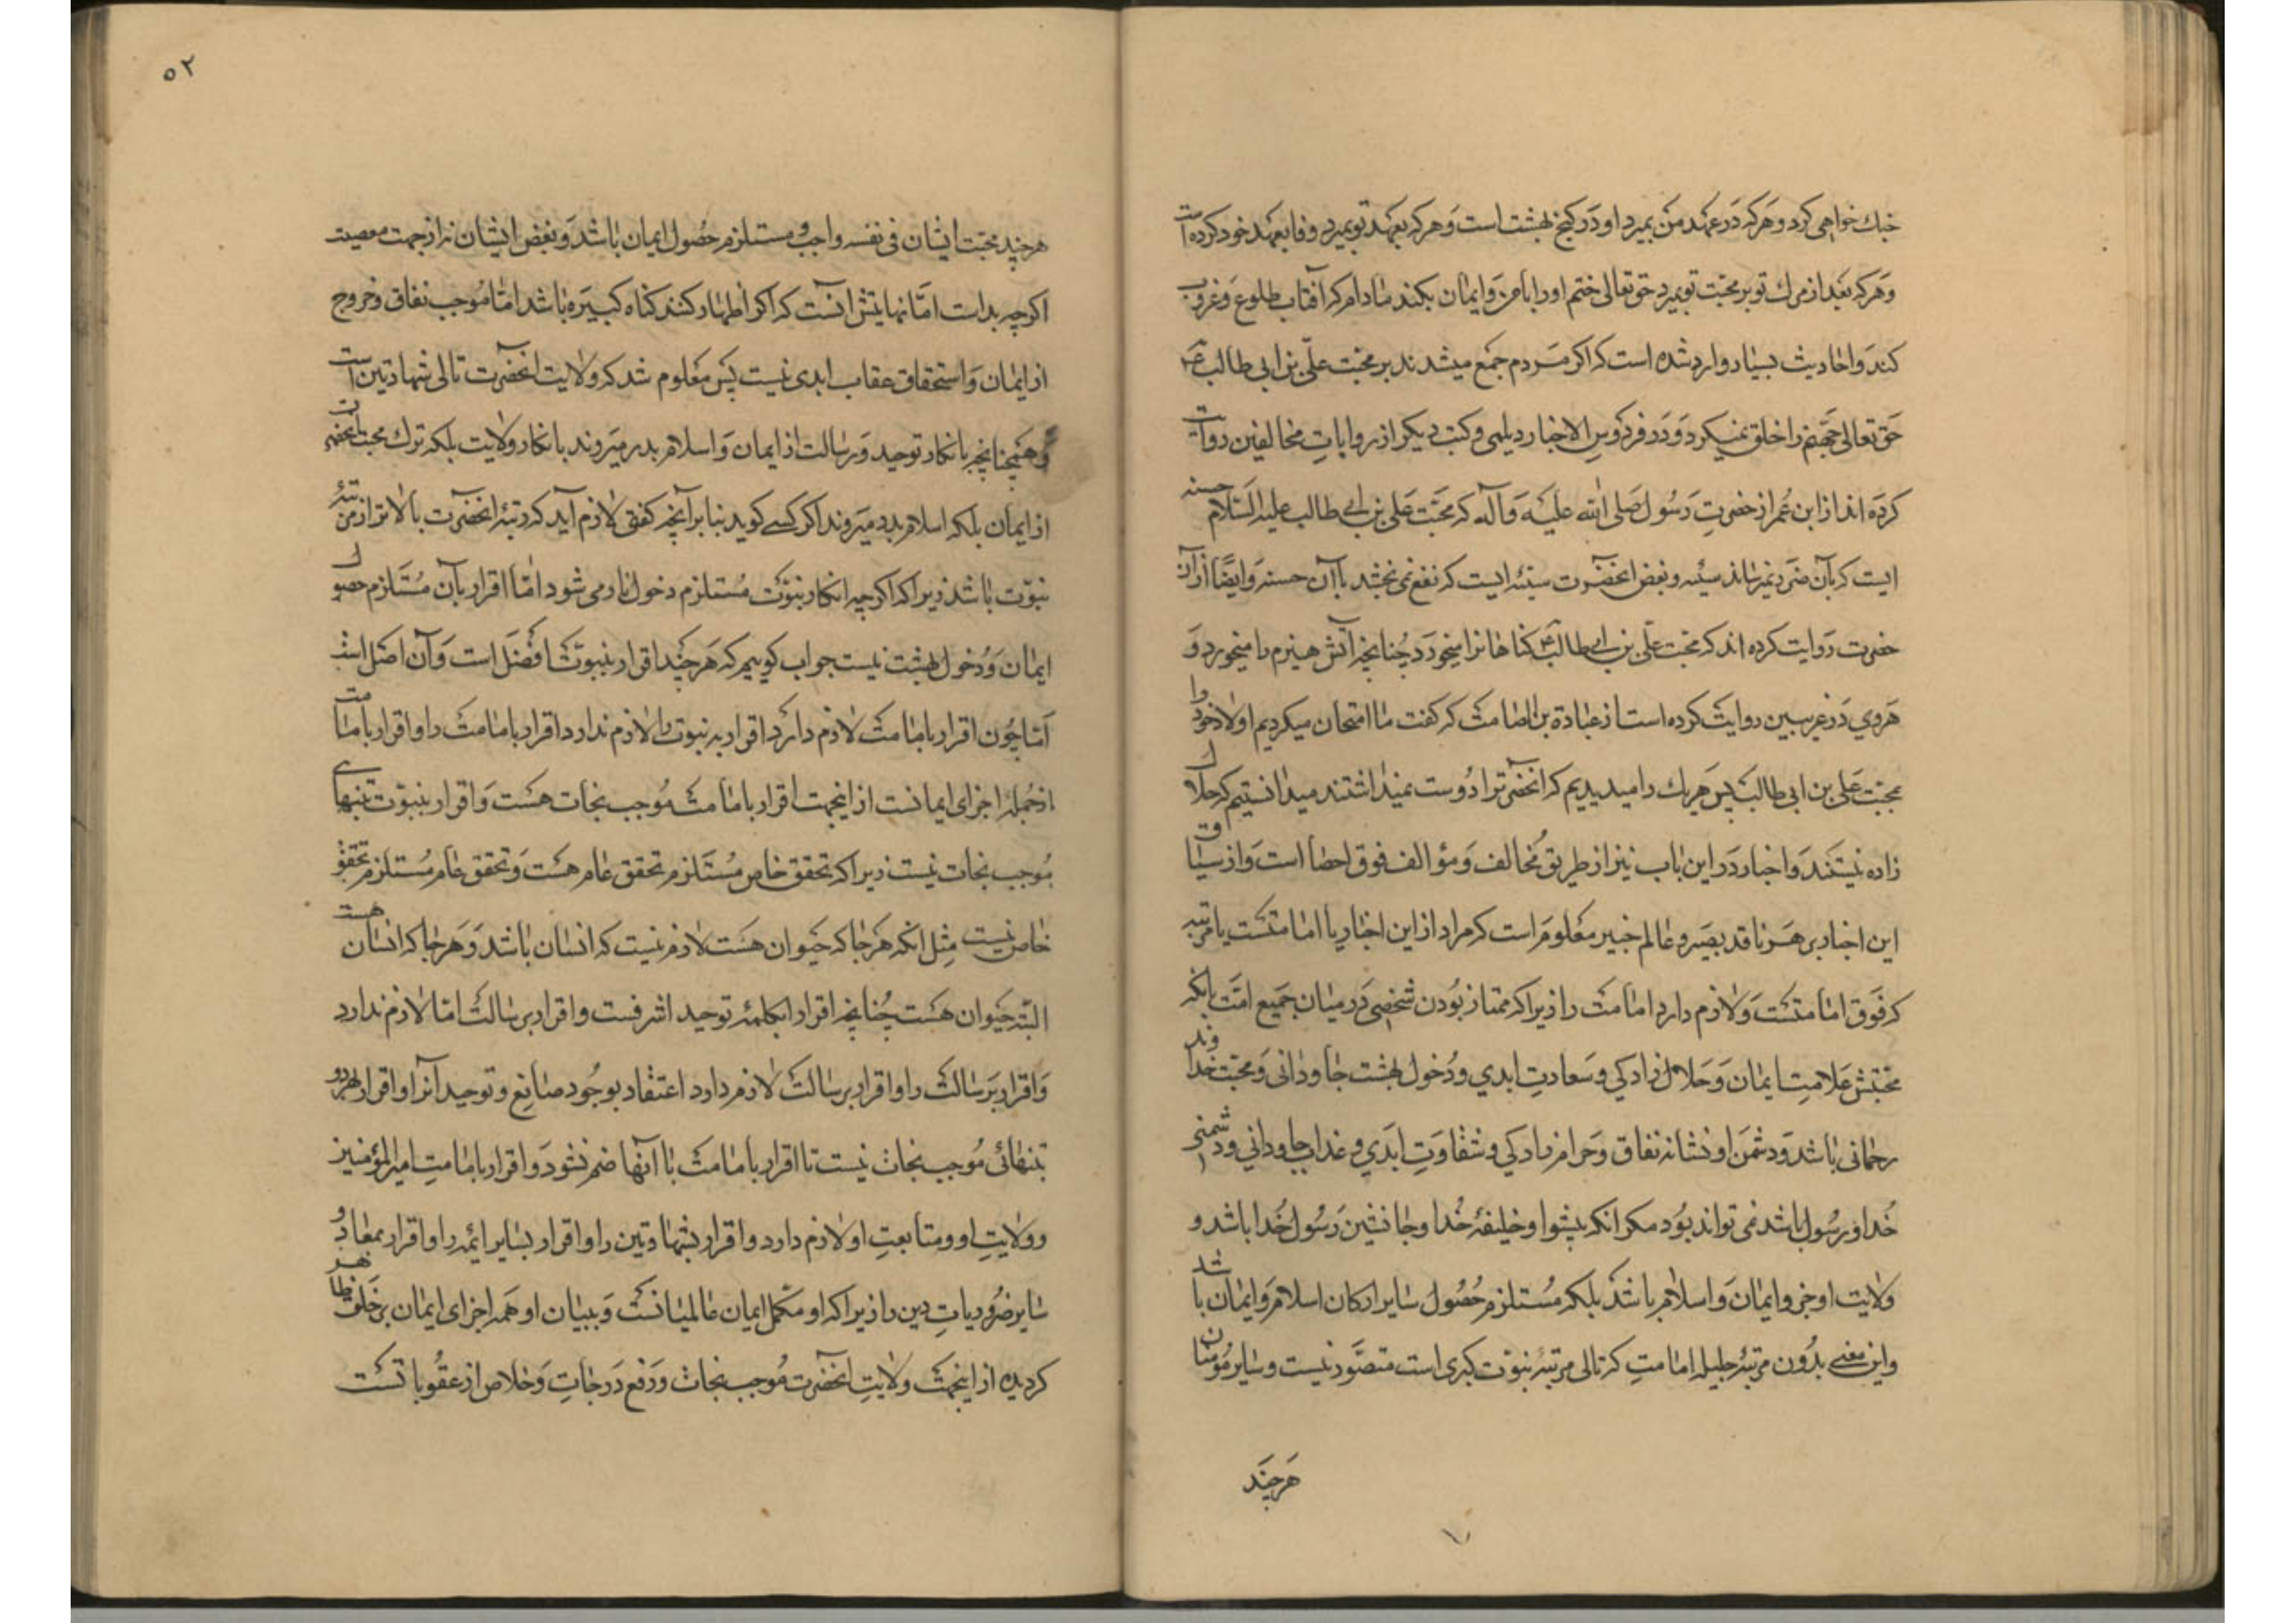 خبك خواهی کرد و هرکه در عهد من بمیرد او در کنج بهشت است و هرکه بعهد تو بمیرد وفا بعهد خود کرده است
وهرکه بعد از مرك تو بر محبت تو بمیرد حق تعالی ختم او را بامن و ایمان بکند مادام که آفتاب طلوع و غروب
کند و احادیث بسیار وارد شده است که اکر مردم جمع میشدند بر محبت علی بن ابی طالب ع
حق تعالی جهنم را خلق نمیکرد و در فردوس الاخبار دیلمی و کتب دیکر از روایات مخالفین روایت
کرده اند از ابن عمر از حضرت رسول صلی الله علیه و آله که محبت علی بن ابی طالب علیه السلام حسنه
ایست که بآن ضرر نمیرساند سیئه و بغض آنحضرت سیئه ایست که نفع نمی بخشد باآن حسنه و ایضا از آن
حضرت روایت کرده اند که محبت علی بن ابی طالب ع کناهانرا میخورد چنانچه آتش هیزم را میخورد و
هروی در غریبین روایت کرده است از عبادة بن الصامت که کفت ما امتحان میکردیم اولاد خود را
بمحبت علی بن ابی طالب پس هر یك را میدیدیم که آنحضرترا دوست نمیداشتند میدانستیم که حلال
زاده نیستند و اخبار در این باب نیز از طریق مخالف و مؤالف فوق احصا است و از سیاق
این اخبار بر هر ناقد بصیر و عالم خبیر معلوم است که مراد از این اخبار یا امامتست یا مرتبه
که فوق امامتست و لازم دارد امامت را زیرا که ممتاز بودن شخصی در میان جمیع امت بانکه
محبتش علامت ایمان و حلال زادکی و سعادت ابدی و دخول بهشت جاودانی و محبت خداوند
رحمانی باشد و دشمن او نشانه نفاق و حرام زادکی و شقاوت ابدی و عذاب جاودانی و دشمنی
خدا و رسول باشد نمی تواند بود مکر انکه پیشوا و خلیفهٔ خدا و جانشین رسول خدا باشد و
ولایت او جزو ایمان و اسلام باشد بلکه مستلزم حصول سایر ارکان اسلام و ایمان باشد
واین معنی بدون مرتبهٔ جلیله امامت که تالی مرتبهٔ نبوت کبری است متصور نیست و سایر مؤمنان
هرچند
هرچند محبت ایشان فی نفسه واجب و مستلزم حصول ایمان باشد و بغض ایشان نه از جهت معصیت
اکرچه بد است امّا نهایتش آنست که اکر اظهار کنند کناه کبیره باشد امّا موجب نفاق و خروج
از ایمان و استحقاق عقاب ابدی نیست پس معلوم شد که ولایت آنحضرت تالی شهادتین است
وهمچنانچه بانکار توحید و رسالت از ایمان و اسلام بدر میروند بانکار ولایت بلکه ترك محبت آنحضرت
از ایمان بلکه اسلام بدر میروند اکر کسے کوید بنابر آنچه کفتی لازم آید که رتبهٔ آنحضرت بالاتر از مرتبهٔ
نبوت باشد زیرا که اکرچه انکار نبوت مستلزم دخول نار می شود امّا اقرار بآن مستلزم حصول
ایمان و دخول بهشت نیست جواب کوییم که هرچند اقرار بنبوت افضل است و آن اصل است
امّا چون اقرار بامامت لازم دارد اقرار به نبوت را و لازم ندارد اقرار بامامت را و اقرار بامامت
از جملهٔ اجزای ایمانست از اینجهت اقرار بامامت موجب نجات هست و اقرار بنبوت بتنهای
موجب نجات نیست زیرا که تحقق خاص مستلزم تحقق عام هست و تحقق عام مستلزم تحقق
خاص نیست مثل انکه هرجا که حیوان هست لازم نیست که انسان باشد و هرجا که انسان هست
البته حیوان هست چنانچه اقرار بکلمهٔ توحید اشرفست و اقرار برسالت امّا لازم ندارد
و اقرار برسالت را و اقرار برسالت لازم دارد اعتقاد بوجود صانع و توحید آنرا و اقرار بهر دو
بتنهائی موجب نجات نیست تا اقرار بامامت باآنها ضم نشود و اقرار بامامت امیرالمؤمنین
و ولایت او و متابعت او لازم دارد و اقرار بشهادتین را و اقرار بسایر ائمه را و اقرار بمعاد و
سایر ضروریات دین را زیرا که او مکمّل ایمان عالمیانست و ببیان او همه اجزای ایمان بر خلق ظاهر
کردیده از اینجهت ولایت آنحضرت موجب نجات و رفع درجات و خلاص از عقوباتست
۵۲